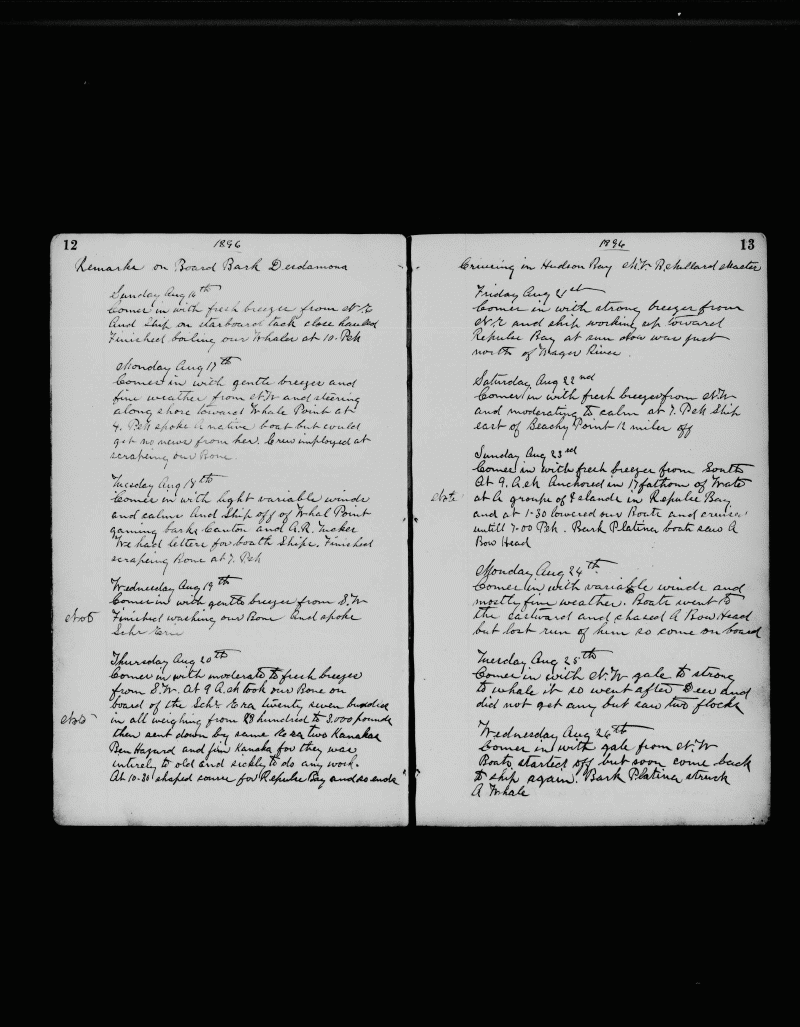 12
1896
Remarks on Board Bark Desdamona
Sunday Aug 16th
Comes in with fresh breezes from N.E
And Ship on starboard tack close hauled
Finished boiling our Whales at 10. P.M
Monday Aug 17th
Comes in with gentle breezes and
fine weather from N.W and steering
along shore toward Whale Point at
4. P.M spoke A native boat but could
get no news from her. Crew imployed at
scraping our Bone.
Tuesday Aug 18th
Comes in with light variable winds
and calms And Ship off of Whal Point
gaming barks Canton and A.R. Tucker
We had letters for boath Ships. Finished
scraping Bone at 7. P.M
Wednesday Aug 19th
Comes in with gentle breezes from S.W
Note Finished washing our Bone And spoke
Schr Era
Thursday Aug 20th
Comes in with moderate to fresh breezes
from S.W. At 9 A.M took our Bone on
board of the Schr Era twenty seven bundles
Note in all weighing from hundred to 3.000 pounds
then sent down by same two Kanakas
Ben Hazard and Jim Kanaka for they was
intirely to old and sickly to do any work.
At 10-30 shaped course for Repulse Bay and so ends
1896
13
Cruising in Hudson Bay Master
Friday Aug 21st
Comes in with strong breezes from
N.E and ship working up toward
Repulse Bay at sun down was just
north of Wager River.
Saturday Aug 22nd
Comes in with fresh breezes from N.W
and moderating to calm at 7. P.M Ship
east of Beachy Point 12 miles off
Sunday Aug 23rd
Comes in with fresh breezes from South
At 9. A.M Anchored in 17 fathom of Water
Note at A groupe of Islands in Repulse Bay
and at 1-30 lowered our Boats and cruised
untill 7-00 P.M. Bark Platina boats saw A
Bow Head
Monday Aug 24th
Comes in with variable winds and
mostly fine weather. Boats went to
the eastward and chased A Bow Head
but lost run of him so come on board
Tuesday Aug 25th
Comes in with N.W gale to strong
to whale it so went after Deer and
did not get any but saw two flocks
Wednesday Aug 26th
Comes in with gale from N.W
Boats started off but soon come back
to ship again. Bark Platina struck
A Whale